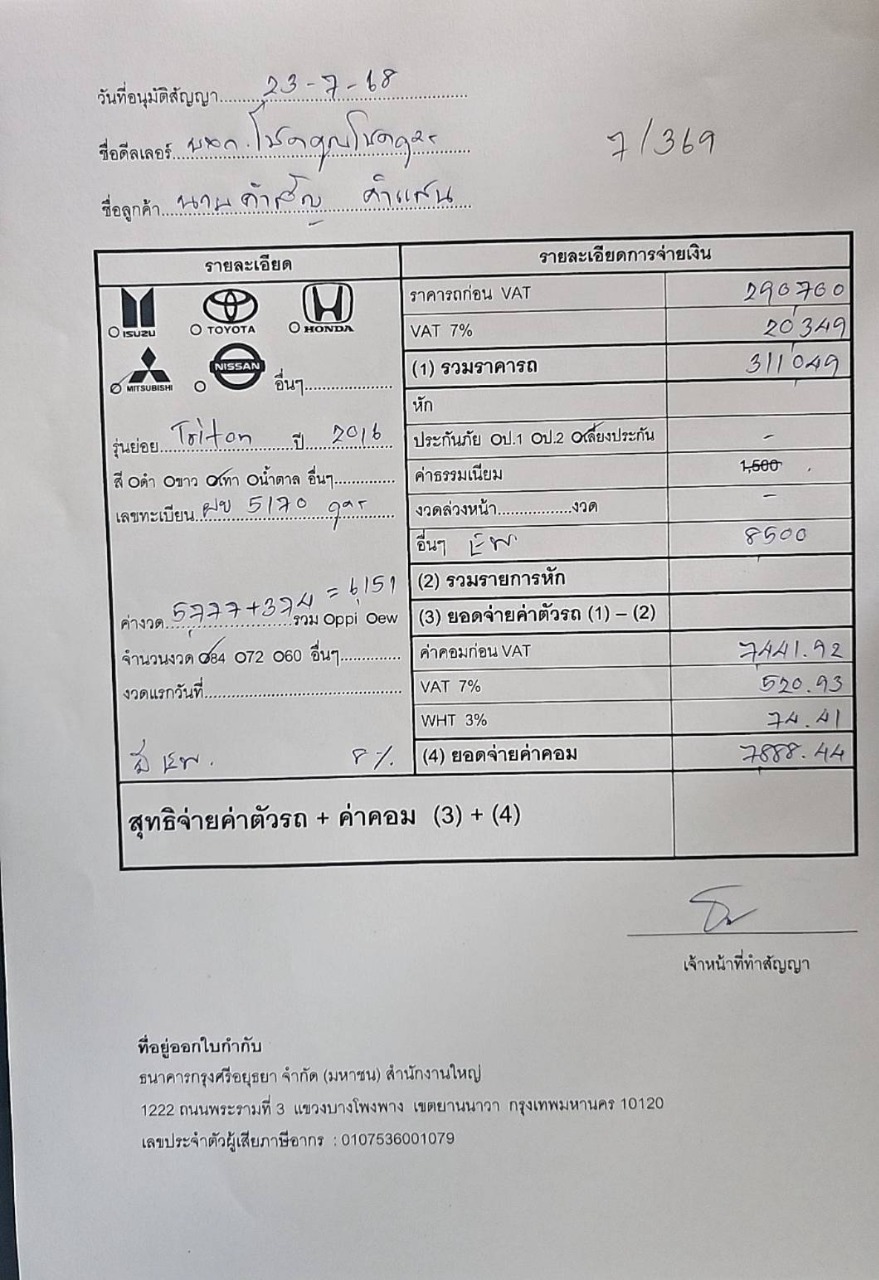 วันที่อนุมัติสัญญา 23-7-68
ชื่อดีลเลอร์
7/369
ชื่อลูกค้า นาย
รายละเอียด
รายละเอียดการจ่ายเงิน
ISUZU TOYOTA HONDA
ราคารถก่อน VAT 290700
VAT 7% 20349
MITSUBISHI NISSAN อื่นๆ
(1) รวมราคารถ 311049
หัก
รุ่นย่อย Triton ปี 2016
ประกันภัย ป.1 ป.2 เลี่ยงประกัน -
สี ดำ ขาว เทา น้ำตาล อื่นๆ
ค่าธรรมเนียม 1,500
เลขทะเบียน 5170
งวดล่วงหน้า งวด -
อื่นๆ 8500
(2) รวมรายการหัก
ค่างวด 5777+374 = 6,151 รวม ppi ew
(3) ยอดจ่ายค่าตัวรถ (1) – (2)
จำนวนงวด 84 72 60 อื่นๆ
ค่าคอมก่อน VAT 7441.92
งวดแรกวันที่
VAT 7% 520.93
WHT 3% 74.41
8%
(4) ยอดจ่ายค่าคอม 7888.44
สุทธิจ่ายค่าตัวรถ + ค่าคอม (3) + (4)
เจ้าหน้าที่ทำสัญญา
ที่อยู่ออกใบกำกับ
ธนาคารกรุงศรีอยุธยา จำกัด (มหาชน) สำนักงานใหญ่
1222 ถนนพระรามที่ 3 แขวงบางโพงพาง เขตยานนาวา กรุงเทพมหานคร 10120
เลขประจำตัวผู้เสียภาษีอากร : 0107536001079